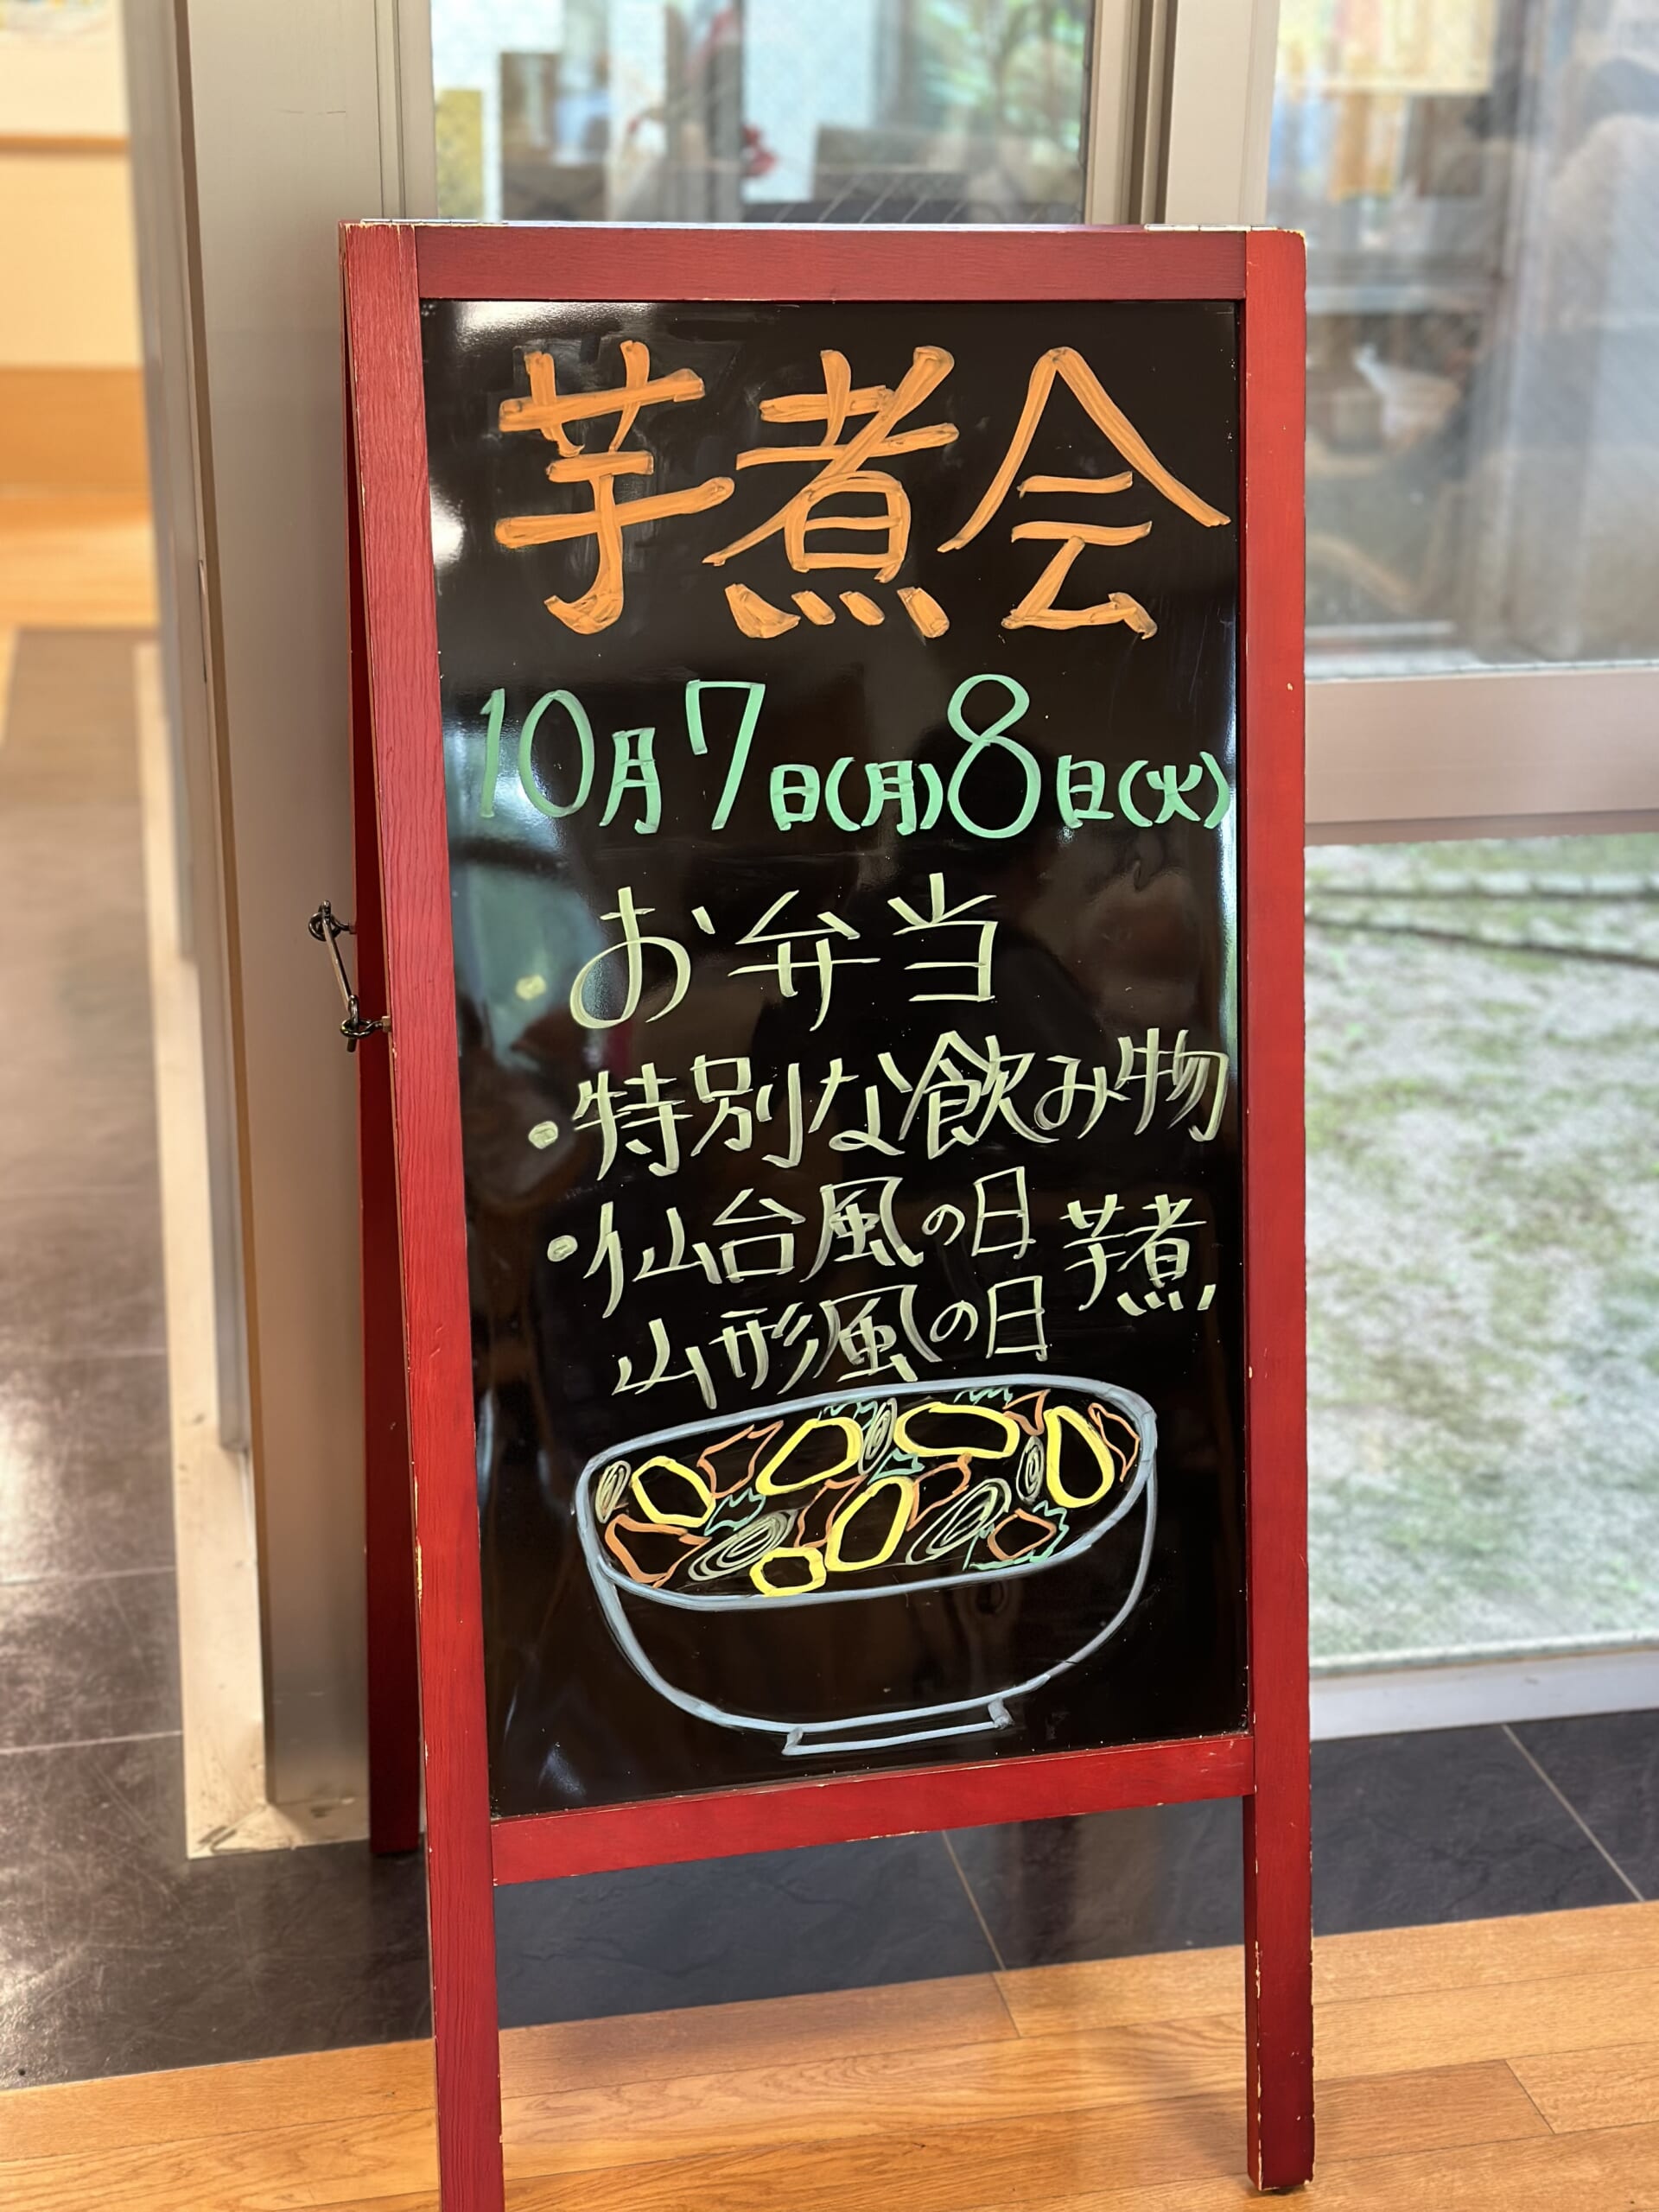 芋煮会
10月7日(月)8日(火)
お弁当
・特別な飲み物
・仙台風の日 芋煮
山形風の日